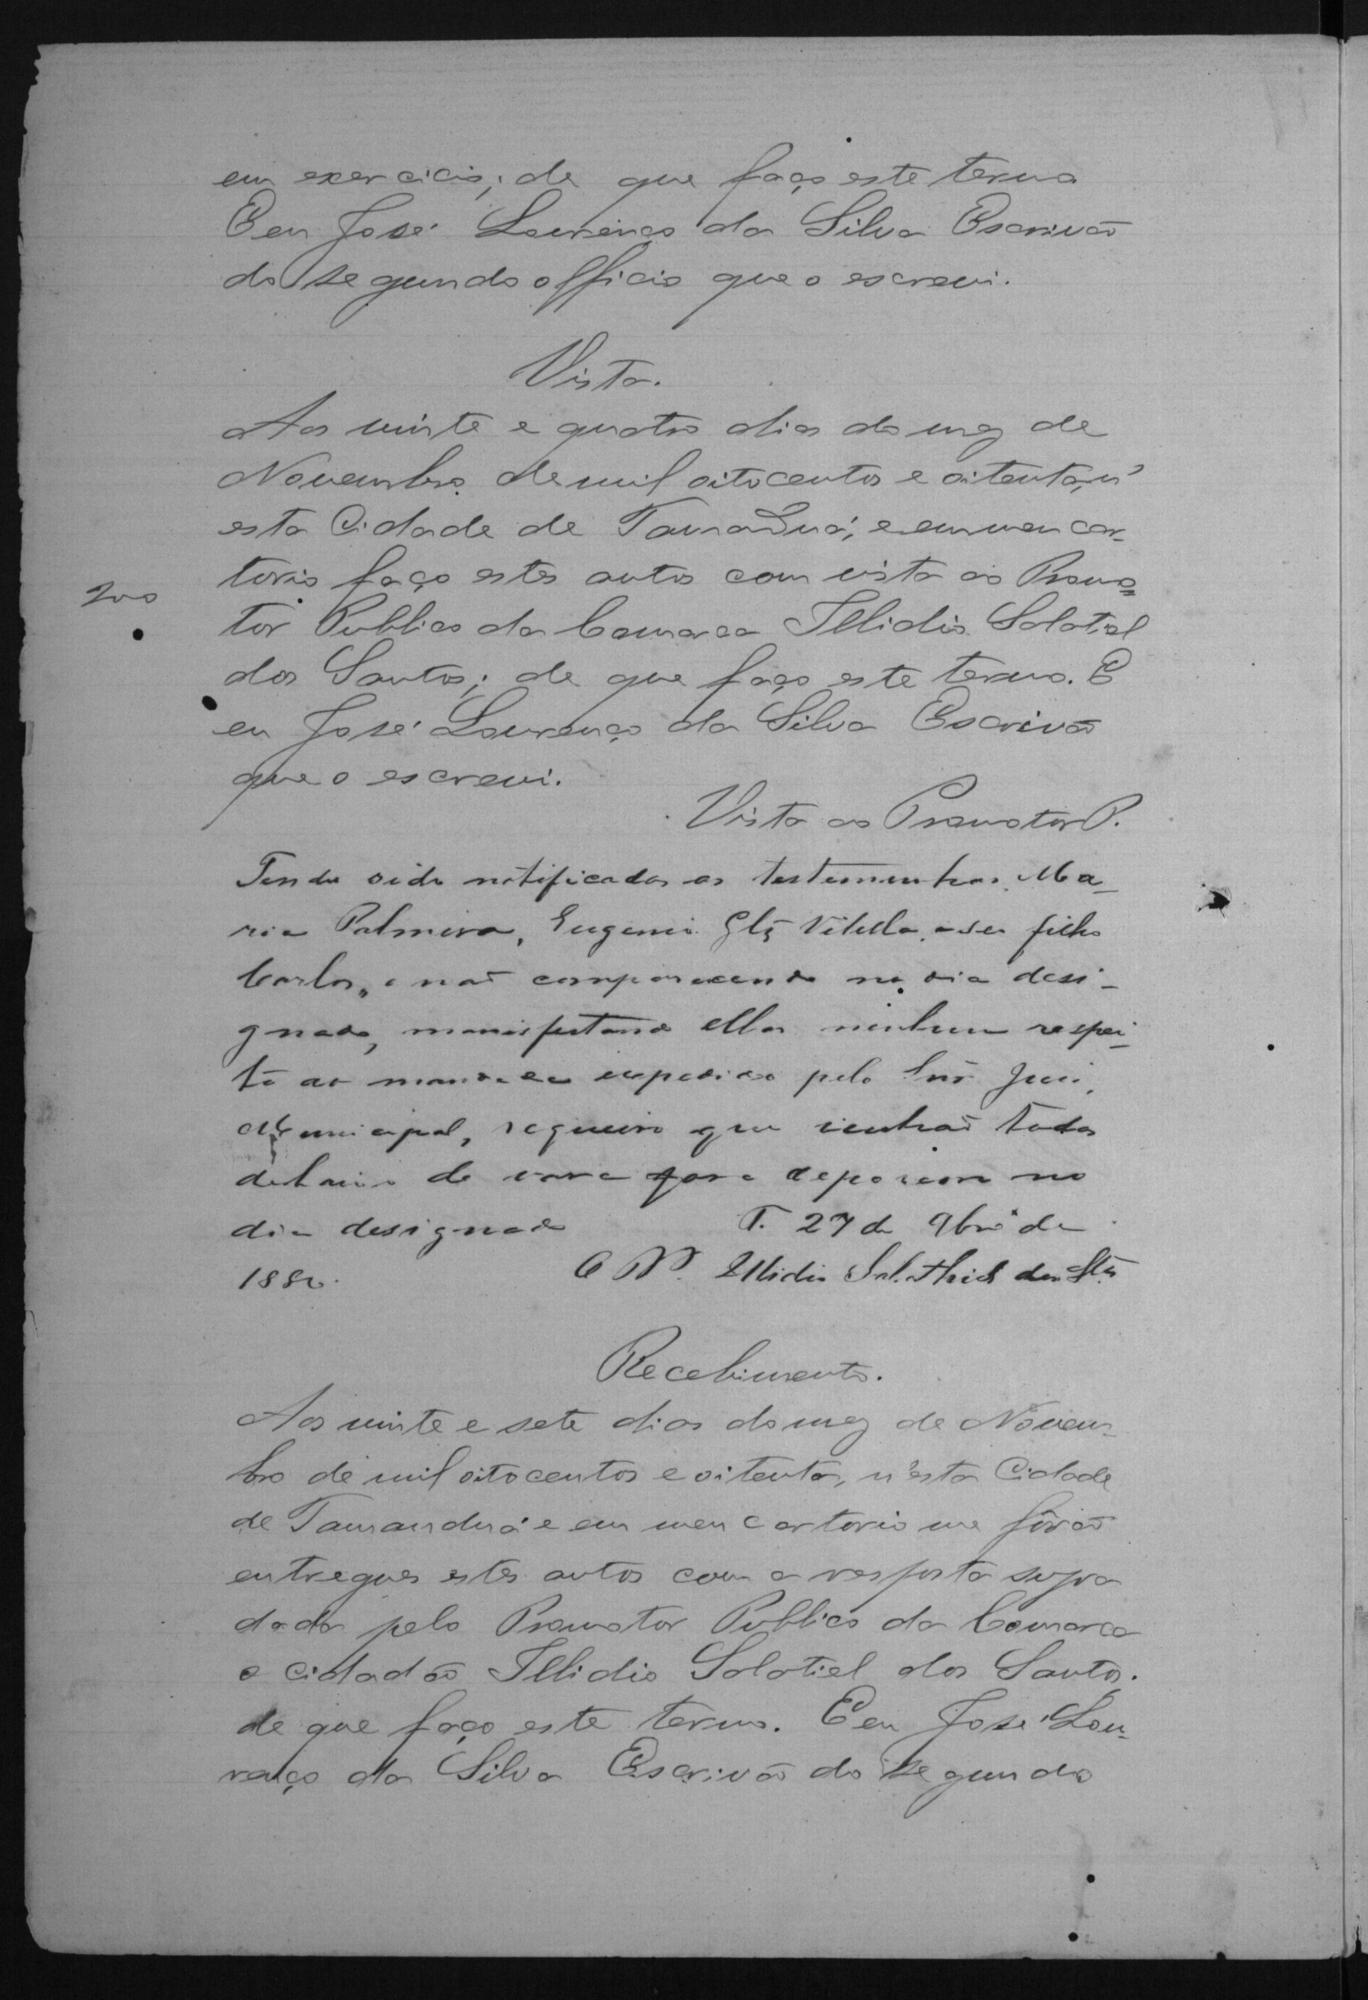 em exercicio; de que faço este termo
E eu José Lourenço da Silva Escrivão
do segundo officio que o escrevi.
Vista.
Aos vinte e quatro dias do mez de
Novembro de mil oitocentos e oitenta, n'
esta Cidade de Tamanduá, e em meu car-
torio faço estes autos com vista ao Promo=
200
tor Publico da Comarca Illidio Salatiel
dos Santos; de que faço este termo. E
eu José Lourenço da Silva Escrivão
que o escrevi.
Vista ao Promotor P.
Tendo sido notificadas as testemunhas Ma-
ria Palmira, Eugenio Glz Vilella, e seu filho
Carlos, e não comparecendo no dia desi-
gnado, manifestando ellas nenhum respei-
to ao mandado expedido pelo Snr Juiz
Municipal, requeiro que venhão todas
debaixo de vara para deporem no
dia designado T. 27 de 9bro de
1880. O P. P. Illidio Salathiel dos Stos
Recebimento.
Aos vinte e sete dias do mez de Novem-
bro de mil oitocentos e oitenta, n'esta Cidade
de Tamanduá e em meu cartorio me fôrão
entregues estes autos com a resposta supra
dada pelo Promotor Publico da Comarca
o cidadão Illidio Salatiel dos Santos.
de que faço este termo. E eu José Lou-
renço da Silva Escrivão do segundo